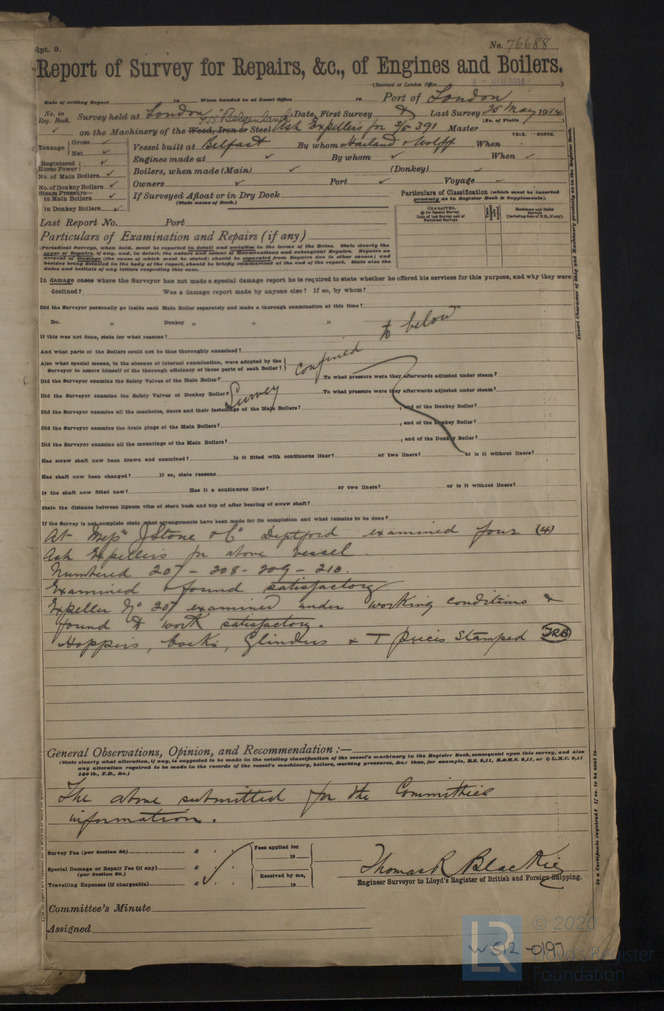 Rpt. 9.
No. 76688
Report of Survey for Repairs, &c., of Engines and Boilers.
(Received at London Office
Date of writing Report 19 When handed in at Local Office 19 Port of London
No. in Reg. Book. Survey held at London Date, First Survey Last Survey 25 May 1914
(No. of Visits )
on the Machinery of the Wood, Iron or Steel Ash Expellers for S/S 391 Master
Tonnage Gross Net Vessel built at Belfast By whom Harland & Wolff When
YEAR. MONTH.
Registered Horse Power Engines made at By whom When
No. of Main Boilers Boilers, when made (Main) (Donkey)
No. of Donkey Boilers Owners Port Voyage
Steam Pressure in Main Boilers If Surveyed Afloat or in Dry Dock
in Donkey Boilers (State name of Dock.)
Particulars of Classification (which must be inserted precisely as in Register Book & Supplements).
Last Report No. Port
Particulars of Examination and Repairs (if any)
In damage cases where the Surveyor has not made a special damage report he is required to state whether he offered his services for this purpose, and why they were
declined? Was a damage report made by anyone else? If so, by whom?
Did the Surveyor personally go inside each Main Boiler separately and make a thorough examination at this time?
Do. „ Donkey „ „ „ „
If this was not done, state for what reasons?
And what parts of the Boilers could not be thus thoroughly examined?
Also what special means, in the absence of internal examination, were adopted by the
Surveyor to assure himself of the thorough efficiency of those parts of each Boiler?
Survey confined to below
Did the Surveyor examine the Safety Valves of the Main Boiler? To what pressure were they afterwards adjusted under steam?
Did the Surveyor examine the Safety Valves of Donkey Boiler? To what pressure were they afterwards adjusted under steam?
Did the Surveyor examine all the manholes, doors and their fastenings of the Main Boilers? , and of the Donkey Boiler?
Did the Surveyor examine the drain plugs of the Main Boilers? , and of the Donkey Boiler?
Did the Surveyor examine all the mountings of the Main Boilers? , and of the Donkey Boiler?
Has screw shaft now been drawn and examined? Is it fitted with continuous liner? or two liners? or is it without liners?
Has shaft now been changed? If so, state reasons
Is the shaft now fitted new? Has it a continuous liner? or two liners? or is it without liners?
State the distance between lignum vitæ of stern bush and top of after bearing of screw shaft?
If the Survey is not complete state what arrangements have been made for its completion and what remains to be done?
At Messrs J Stone & Co Deptford examined four (4)
Ash Expellers for above vessel.
Numbered 207 – 208 – 209 – 210.
Examined & found satisfactory
Expeller No 207 examined under working conditions &
found to work satisfactory.
Hoppers, cocks, & T pieces stamped TRB
General Observations, Opinion, and Recommendation :—
(State clearly what alteration, if any, is suggested to be made in the existing classification of the vessel's machinery in the Register Book, consequent upon this survey, and also
any alteration required to be made in the records of the vessel's machinery, boilers, working pressures, &c.; thus, for example, B.S. 9,11, B.&M.S. 9,11, or L.M.C. 9,11
140 lb., F.D., &c.)
The above submitted for the Committee's
information.
Survey Fee (per Section 28) £ : :
Special Damage or Repair Fee (if any) £ : :
(per Section 28.)
Travelling Expenses (if chargeable) £ : :
Fees applied for
19
Received by me,
19
Thomas R Blackie
Engineer Surveyor to Lloyd's Register of British and Foreign Shipping.
Committee's Minute
Assigned
W512-0197
LR
Register
Foundation